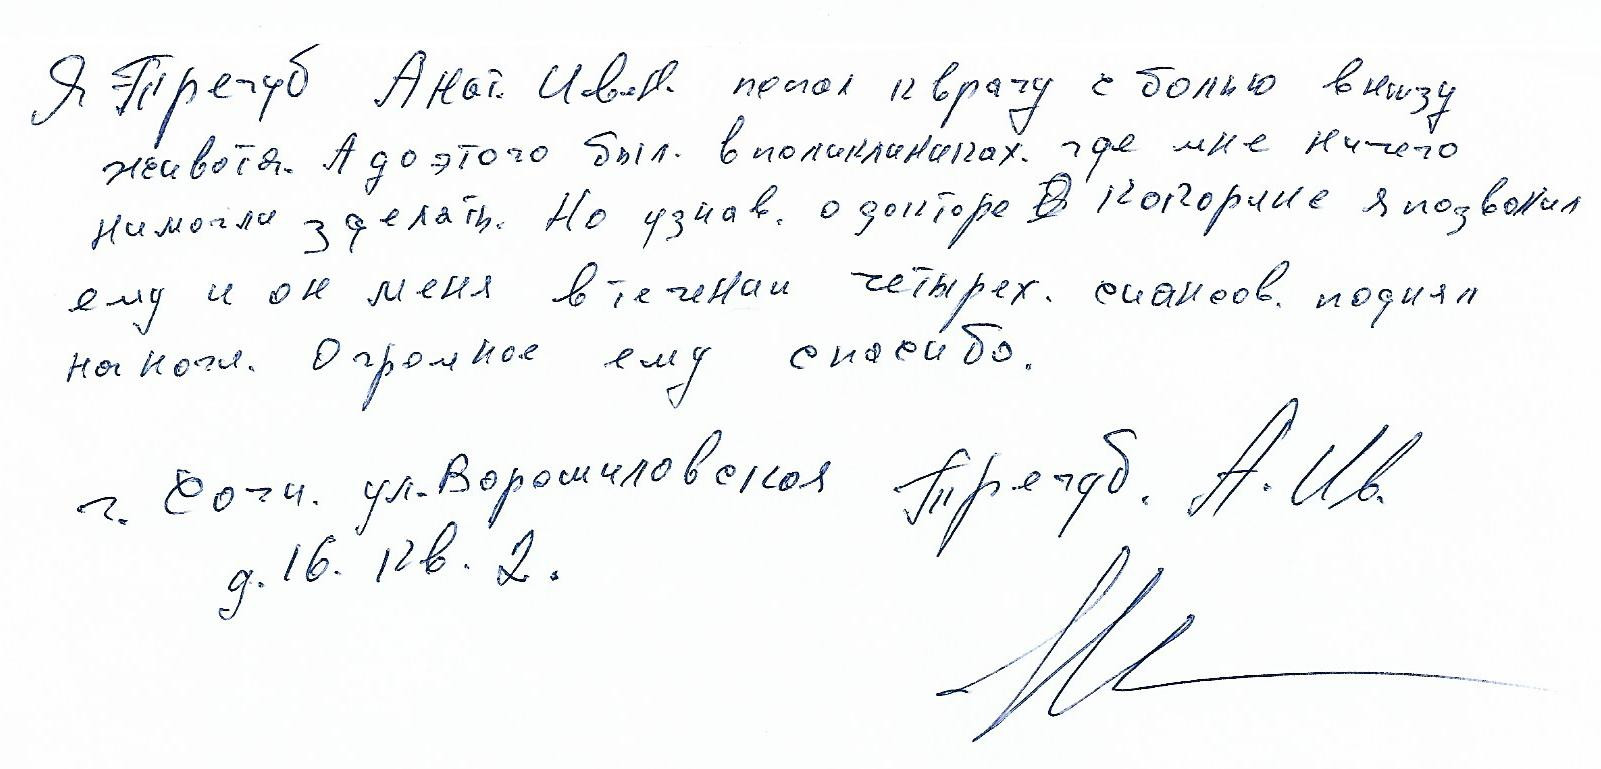 Я Тречуб Анат. Ив.Ив. попал к врачу с болью внизу
живота. А до этого был. в поликлиниках. где мне ничего
нимогли зделать. Но узнав. о докторе Я позвонил
ему и он меня в течении четырех. сиансов. поднял
на ноги. Огромное ему спасибо.
г. Сочи. ул. Ворошиловская Тречуб. А. Ив.
д. 16. кв. 2.